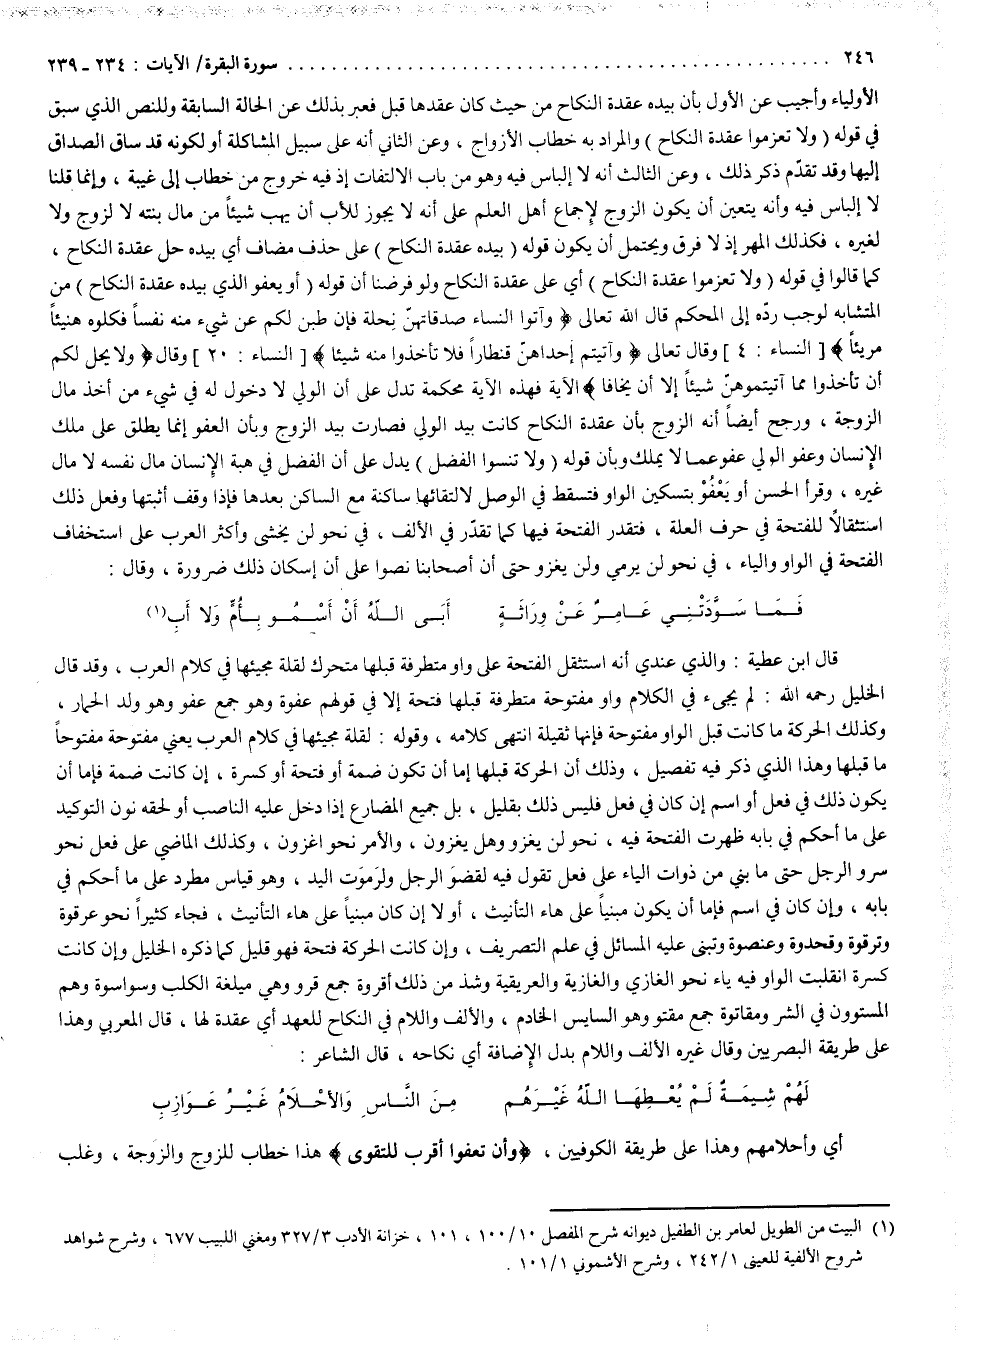 ٢٤٦ .................................................. سورة البقرة/ الآيات : ٢٣٤ ـ ٢٣٩
الأولياء وأجيب عن الأول بأن بيده عقدة النكاح من حيث كان عقدها قبل فعبر بذلك عن الحالة السابقة وللنص الذي سبق
في قوله ( ولا تعزموا عقدة النكاح ) والمراد به خطاب الأزواج ، وعن الثاني أنه على سبيل المشاكلة أو لكونه قد ساق الصداق
إليها وقد تقدّم ذكر ذلك ، وعن الثالث أنه لا إلباس فيه وهو من باب الالتفات إذ فيه خروج من خطاب إلى غيبة ، وإنما قلنا
لا إلباس فيه وأنه يتعين أن يكون الزوج لإجماع أهل العلم على أنه لا يجوز للأب أن يهب شيئاً من مال بنته لا لزوج ولا
لغيره ، فكذلك المهر إذ لا فرق ويحتمل أن يكون قوله ( بيده عقدة النكاح ) على حذف مضاف أي بيده حل عقدة النكاح ،
كما قالوا في قوله ( ولا تعزموا عقدة النكاح ) أي على عقدة النكاح ولو فرضنا أن قوله ( أو يعفو الذي بيده عقدة النكاح ) من
المتشابه لوجب ردّه إلى المحكم قال الله تعالى ﴿ وآتوا النساء صدقاتهنّ نِحلة فإن طبن لكم عن شيء منه نفساً فكلوه هنيئاً
مريئاً ﴾ [ النساء : ٤ ] وقال تعالى ﴿ وآتيتم إحداهنّ قنطاراً فلا تأخذوا منه شيئا ﴾ [ النساء : ٢٠ ] وقال ﴿ ولا يحل لكم
أن تأخذوا مما آتيتموهنّ شيئاً إلا أن يخافا ﴾ الآية فهذه الآية محكمة تدل على أن الولي لا دخول له في شيء من أخذ مال
الزوجة ، ورجح أيضاً أنه الزوج بأن عقدة النكاح كانت بيد الولي فصارت بيد الزوج وبأن العفو إنما يطلق على ملك
الإنسان وعفو الولي عفو عما لا يملك وبأن قوله ( ولا تنسوا الفضل ) يدل على أن الفضل في هبة الإنسان مال نفسه لا مال
غيره ، وقرأ الحسن أو يَعْفُوْ بتسكين الواو فتسقط في الوصل لالتقائها ساكنة مع الساكن بعدها فإذا وقف أثبتها وفعل ذلك
استثقالاً للفتحة في حرف العلة ، فتقدر الفتحة فيها كما تقدّر في الألف ، في نحو لن يخشى وأكثر العرب على استخفاف
الفتحة في الواو والياء ، في نحو لن يرمي ولن يغزو حتى أن أصحابنا نصوا على أن إسكان ذلك ضرورة ، وقال :
فَمَا سَوَّدَتْنِي عَامِرٌ عَنْ وِرَاثَةٍ أَبَى اللهُ أَنْ أَسْمُو بِأُمٍّ وَلا أَبِ(١)
قال ابن عطية : والذي عندي أنه استثقل الفتحة على واو متطرفة قبلها متحرك لقلة مجيئها في كلام العرب ، وقد قال
الخليل رحمه الله : لم يجىء في الكلام واو مفتوحة متطرفة قبلها فتحة إلا في قولهم عفوة وهو جمع عفو وهو ولد الحمار ،
وكذلك الحركة ما كانت قبل الواو مفتوحة فإنها ثقيلة انتهى كلامه ، وقوله : لقلة مجيئها في كلام العرب يعني مفتوحة مفتوحاً
ما قبلها وهذا الذي ذكر فيه تفصيل ، وذلك أن الحركة قبلها إما أن تكون ضمة أو فتحة أو كسرة ، إن كانت ضمة فإما أن
يكون ذلك في فعل أو اسم إن كان في فعل فليس ذلك بقليل ، بل جميع المضارع إذا دخل عليه الناصب أو لحقه نون التوكيد
على ما أحكم في بابه ظهرت الفتحة فيه ، نحو لن يغزو وهل يغزون ، والأمر نحو اغزون ، وكذلك الماضي على فعل نحو
سرو الرجل حتى ما بني من ذوات الياء على فعل تقول فيه لقضوَ الرجل ولرَموَت اليد ، وهو قياس مطرد على ما أحكم في
بابه ، وإن كان في اسم فإما أن يكون مبنياً على هاء التأنيث ، أو لا إن كان مبنياً على هاء التأنيث ، فجاء كثيراً نحو عرقوة
وترقوة وقحدوة وعنصوة وتبنى عليه المسائل في علم التصريف ، وإن كانت الحركة فتحة فهو قليل كما ذكره الخليل وإن كانت
كسرة انقلبت الواو فيه ياء نحو الغازي والغازية والعريقية وشذ من ذلك أقروة جمع قرو وهي ميلغة الكلب وسواسوة وهم
المستوون في الشر ومقاتوة جمع مقتو وهو السايس الخادم ، والألف واللام في النكاح للعهد أي عقدة لها ، قال المعربي وهذا
على طريقة البصريين وقال غيره الألف واللام بدل الإضافة أي نكاحه ، قال الشاعر :
لَهُمْ شِيمَةٌ لَمْ يُعْطِهَا اللهُ غَيْرَهُم مِنَ النَّاسِ وَالأحْلامُ غَيْرُ عَوَازِبِ
أي وأحلامهم وهذا على طريقة الكوفيين ، ﴿وأن تعفوا أقرب للتقوى ﴾ هذا خطاب للزوج والزوجة ، وغلب
(١) البيت من الطويل لعامر بن الطفيل ديوانه شرح المفصل ١٠٠/١٠ ، ١٠١ ، خزانة الأدب ٣٢٧/٣ ومغني اللبيب ٦٧٧ ، وشرح شواهد
شروح الألفية للعينى ٢٤٢/١ ، وشرح الأشموني ١٠١/١ .